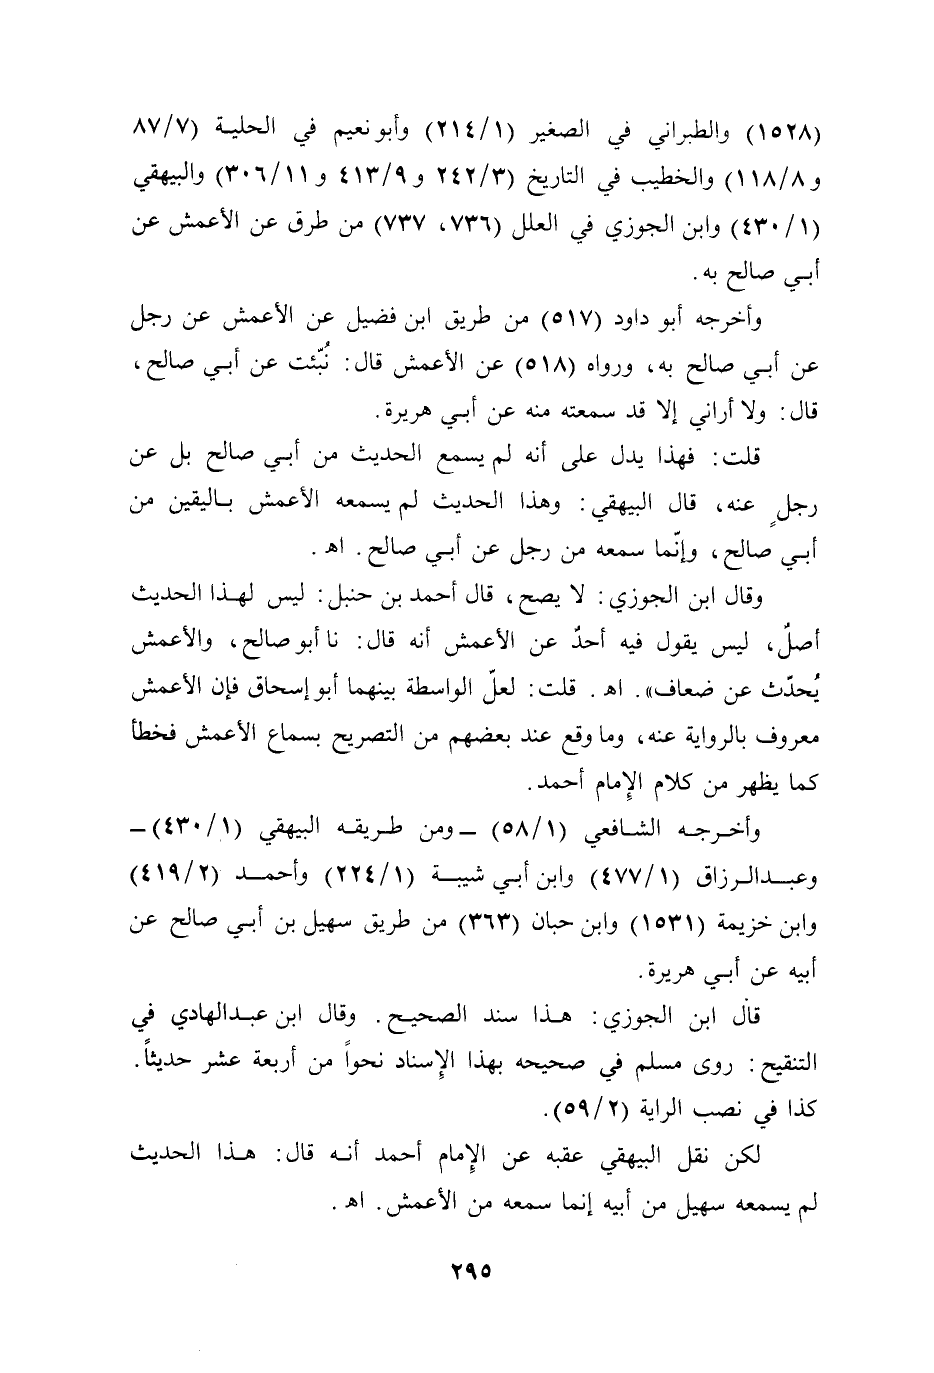 (١٥٢٨) والطبراني في الصغير (٢١٤/١) وأبو نعيم في الحلية (٨٧/٧
و ١١٨/٨) والخطيب في التاريخ (٢٤٢/٣ و ٤١٣/٩ و ٣٠٦/١١) والبيهقي
(٤٣٠/١) وابن الجوزي في العلل (٧٣٦، ٧٣٧) من طرق عن الأعمش عن
أبي صالح به.
وأخرجه أبو داود (٥١٧) من طريق ابن فضيل عن الأعمش عن رجل
عن أبي صالح به، ورواه (٥١٨) عن الأعمش قال: نُبِّئت عن أبي صالح،
قال: ولا أراني إلا قد سمعته منه عن أبي هريرة.
قلت: فهذا يدل على أنه لم يسمع الحديث من أبي صالح بل عن
رجلٍ عنه، قال البيهقي: وهذا الحديث لم يسمعه الأعمش باليقين من
أبي صالح، وإنّما سمعه من رجل عن أبي صالح. اهـ.
وقال ابن الجوزي: لا يصح، قال أحمد بن حنبل: ليس لهذا الحديث
أصلٌ، ليس يقول فيه أحدٌ عن الأعمش أنه قال: نا أبو صالح، والأعمش
يُحدّث عن ضعاف». اهـ. قلت: لعلّ الواسطة بينهما أبو إسحاق فإن الأعمش
معروف بالرواية عنه، وما وقع عند بعضهم من التصريح بسماع الأعمش فخطأ
كما يظهر من كلام الإمام أحمد.
وأخرجه الشافعي (٥٨/١) – ومن طريقه البيهقي (٤٣٠/١) –
وعبدالرزاق (٤٧٧/١) وابن أبي شيبة (٢٢٤/١) وأحمد (٤١٩/٢)
وابن خزيمة (١٥٣١) وابن حبان (٣٦٣) من طريق سهيل بن أبي صالح عن
أبيه عن أبي هريرة.
قال ابن الجوزي: هذا سند الصحيح. وقال ابن عبدالهادي في
التنقيح: روى مسلم في صحيحه بهذا الإسناد نحواً من أربعة عشر حديثاً.
كذا في نصب الراية (٥٩/٢).
لكن نقل البيهقي عقبه عن الإمام أحمد أنه قال: هذا الحديث
لم يسمعه سهيل من أبيه إنما سمعه من الأعمش. اهـ.
٢٩٥